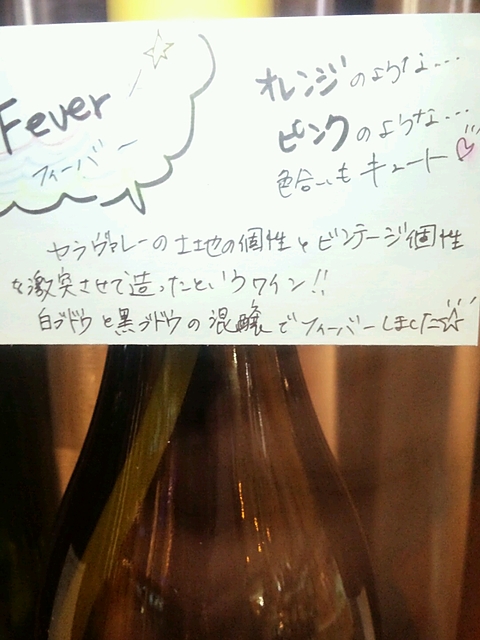 Fever
フィーバー
オレンジのような...
ピンクのような...
色合いもキュート♡
ヤラヴァレーの土地の個性とビンテージ個性
を激突させて造ったというワイン!!
白ブドウと黒ブドウの混醸でフィーバーしました☆